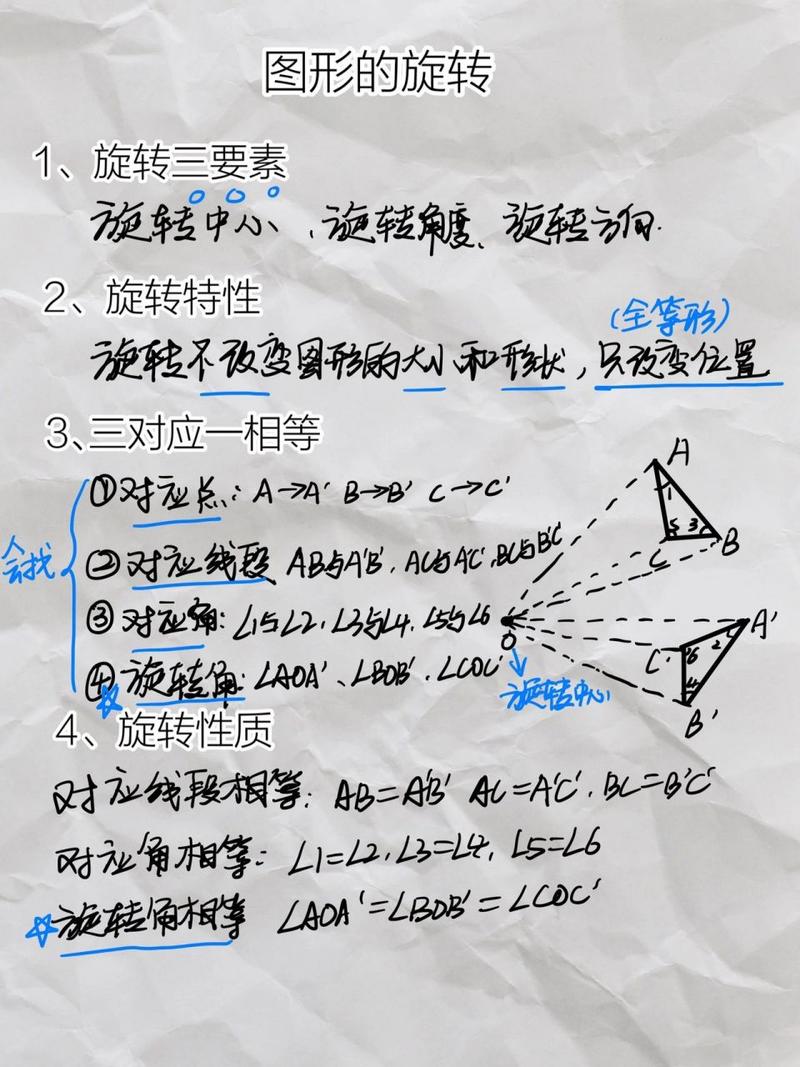 图形的旋转
1、旋转三要素
旋转中心、旋转角度、旋转方向.
2、旋转特性
(全等形)
旋转不改变图形的大小和形状，只改变位置
3、三对应一相等
会找
①对应点: A→A' B→B' C→C'
②对应线段 AB与A'B', AC与A'C', BC与B'C'
③对应角: ∠1与∠2, ∠3与∠4, ∠5与∠6
④旋转角: ∠AOA'、∠BOB'、∠COC'
A
1
5 3
C B
O A'
C' 6 2
4
B'
旋转中心
4、旋转性质
对应线段相等: AB=A'B' AC=A'C', BC=B'C'
对应角相等: ∠1=∠2, ∠3=∠4, ∠5=∠6
旋转角相等 ∠AOA'=∠BOB'=∠COC'